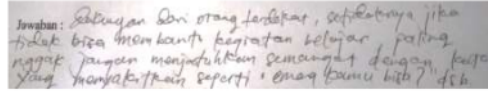 Jawaban: Dukungan dari orang terdekat, setidaknya jika
tidak bisa membantu kegiatan belajar paling
nggak jangan menjatuhkan semangat dengan kata
yang menyakitkan seperti "emang kamu bisa?" dsb.